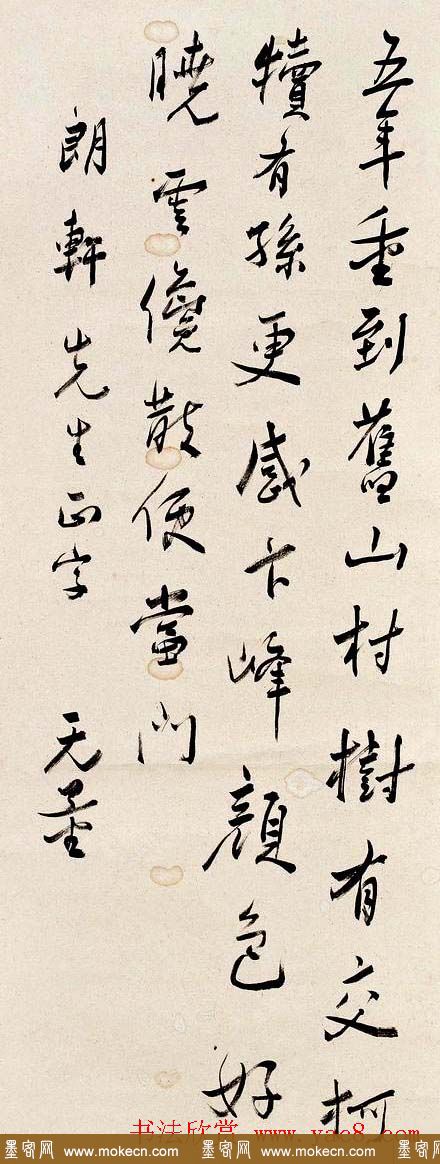 五年重到舊山村樹有交柯
犢有孫更感卞峰顏色好
曉雲儳散便當門
朗軒先生正字 无量
书法欣赏 www.yac8.com
墨客网 www.mokecn.com 墨客网 www.mokecn.com